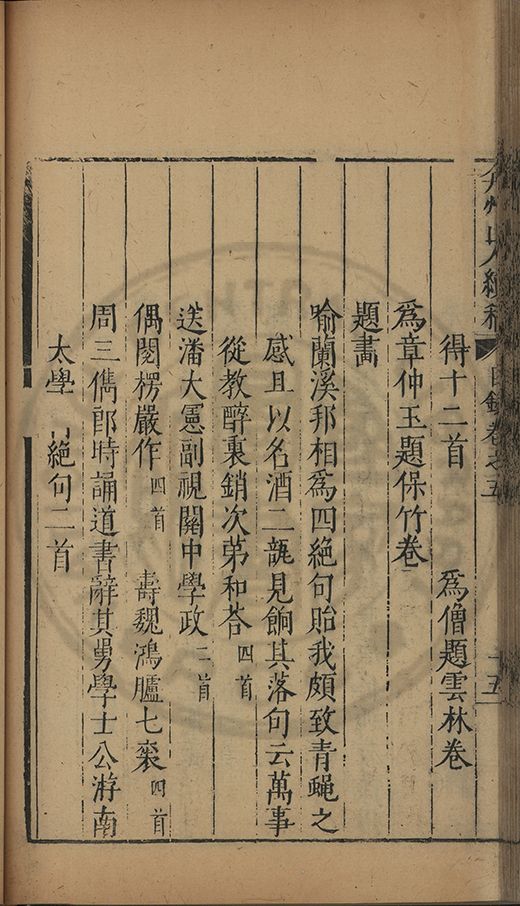 弇州山人續稿 目錄卷之五 十五
得十二首 為僧題雲林卷
為章仲玉題保竹卷
題畫
喻蘭溪邦相為四絕句貽我頗致青蠅之
感且以名酒二瓿見餉其落句云萬事
從教醉裏銷次苐和荅四首
送潘大憲副視關中學政二首
偶閱楞嚴作四首 壽魏鴻臚七袠四首
周三儁郎時誦道書辭其舅學士公游南
太學 絕句二首